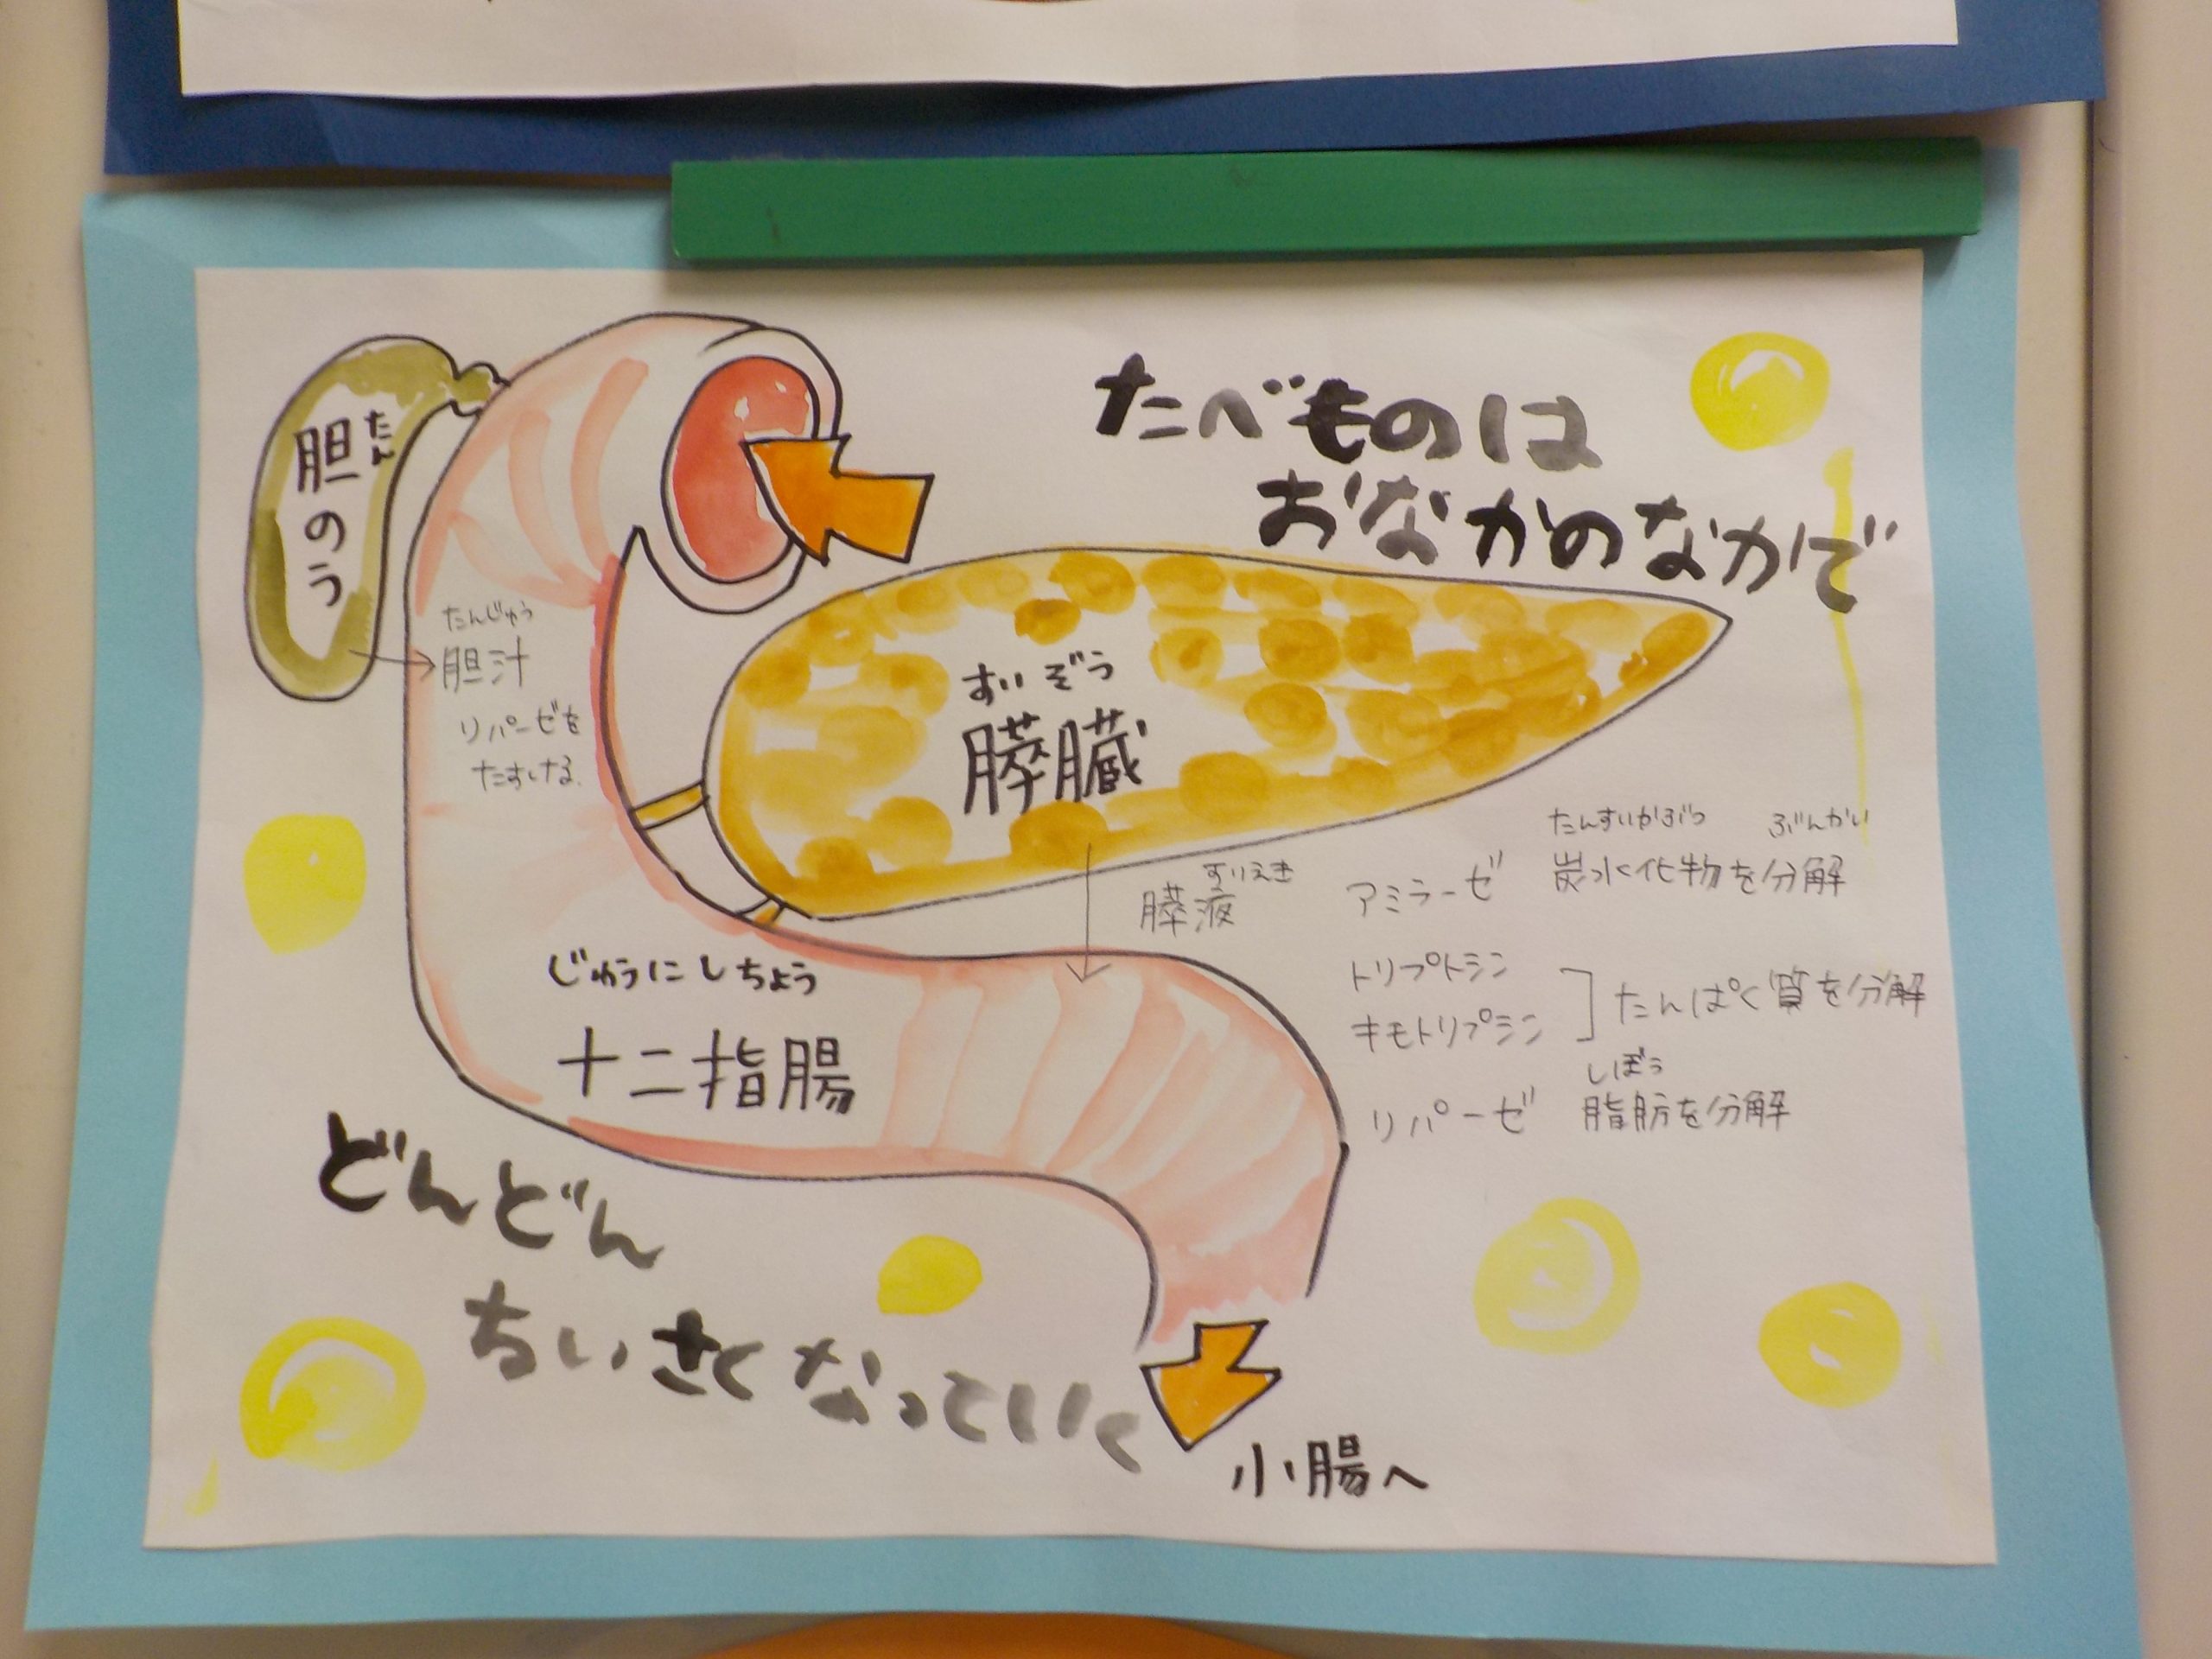 たべものは
おなかのなかで
たん
胆のう
たんじゅう
胆汁
リパーゼを
たすける.
すいぞう
膵臓
すいえき
膵液
たんすいかぶつ ぶんかい
アミラーゼ 炭水化物を分解
トリプトシン
キモトリプシン
たんぱく質を分解
しぼう
リパーゼ 脂肪を分解
じゅうにしちょう
十二指腸
どんどん
ちいさくなっていく
小腸へ